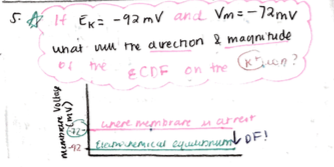 5. If EK = -92mV and Vm = -72mV
what will the direction & magnitude
of the ECDF on the K+ ion?
membrane Voltage
(mV)
-72
where membrane is at rest
-92
Electrochemical equilibrium
DF!